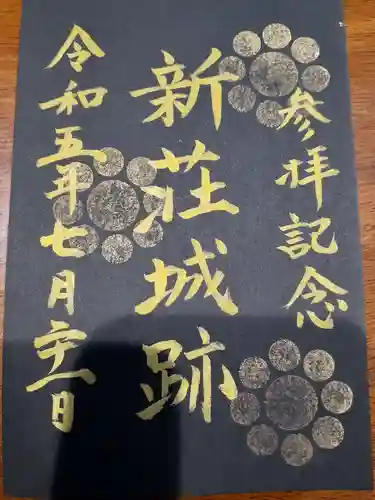 参拝記念
新荘城跡
令和五年七月廿一日